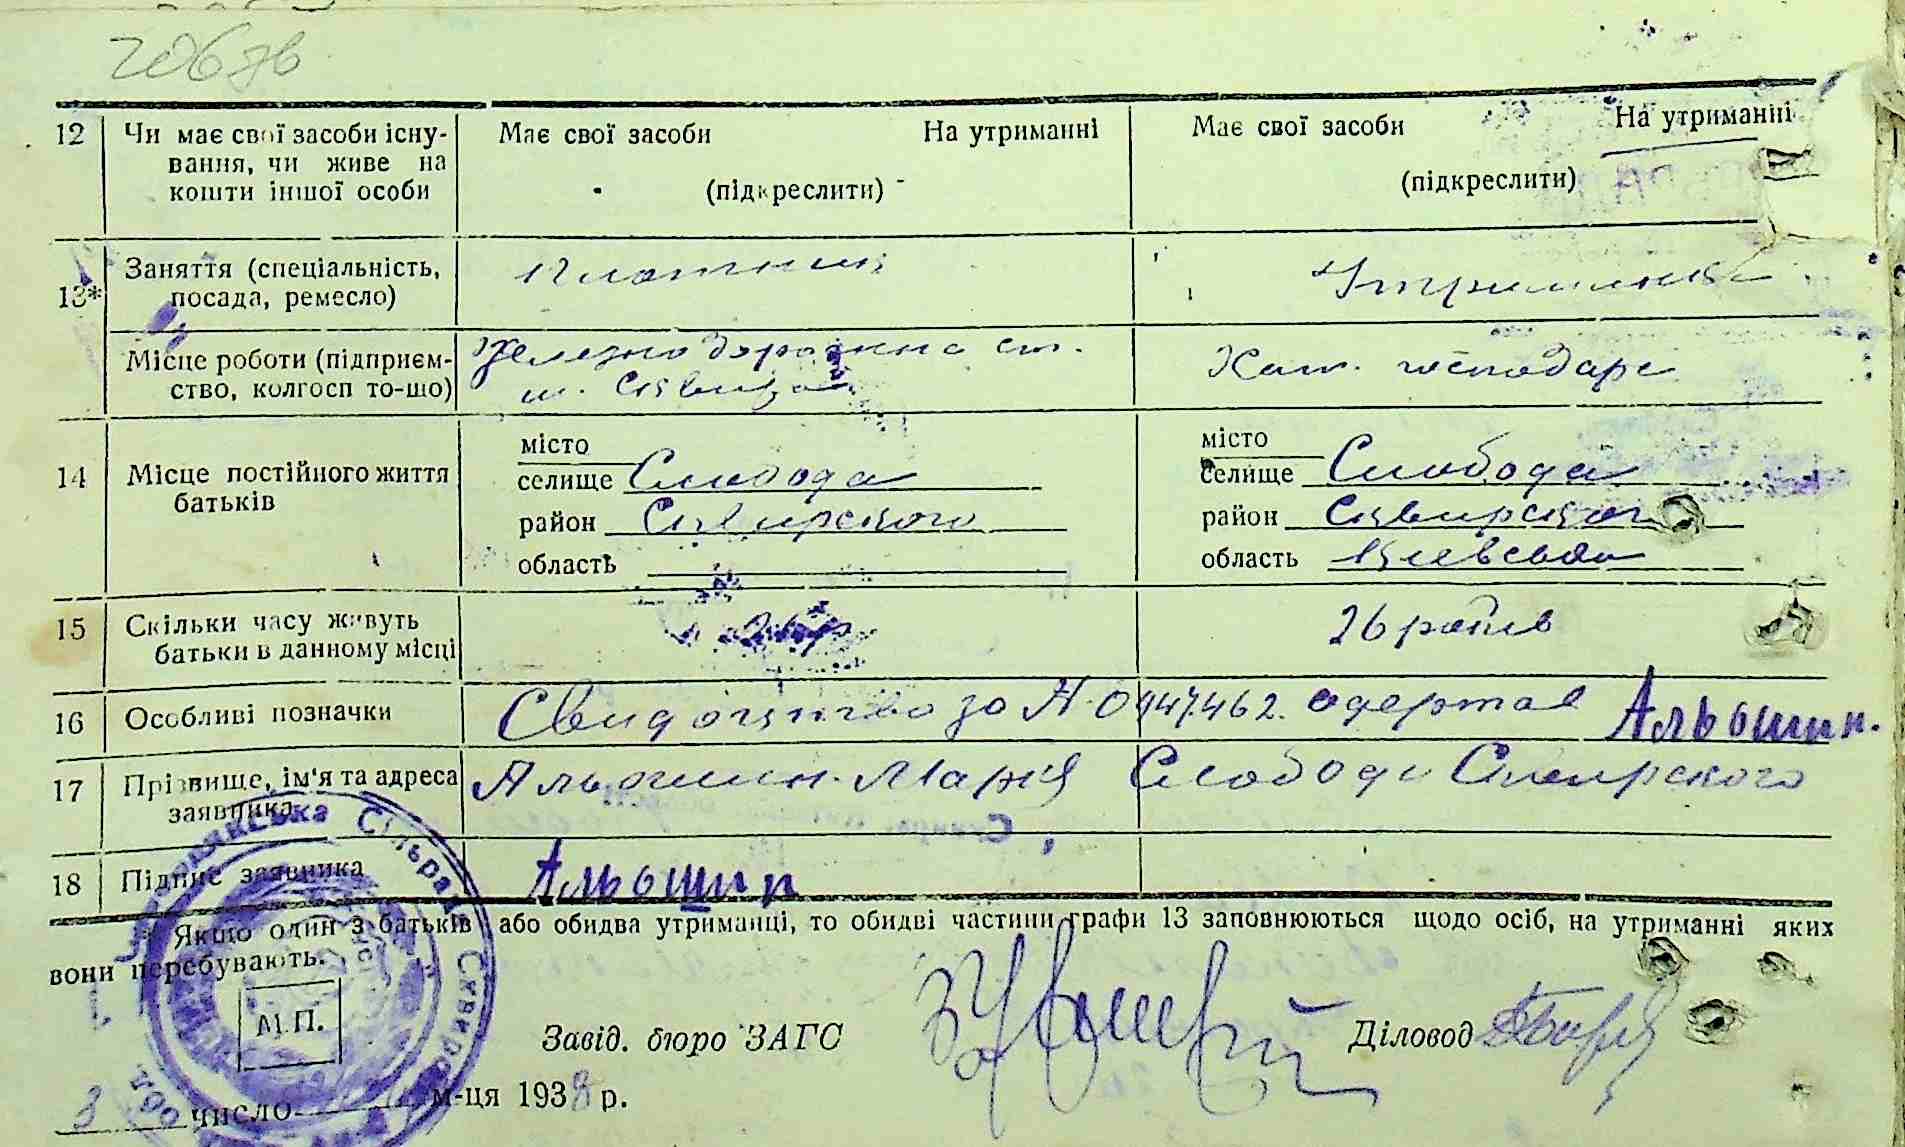 12 Чи має свої засоби існу-
вання, чи живе на
кошти іншої особи
Має свої засоби На утриманні
(підкреслити)
Має свої засоби На утриманні
(підкреслити)
13* Заняття (спеціальність,
посада, ремесло)
Плотник
Утриманка
Місце роботи (підприєм-
ство, колгосп то-що)
Железнодорожна ст.
Сквира
Хат. господарс
14 Місце постійного життя
батьків
місто
селище Слобода
район Сквирского
область
місто
селище Слобода
район Сквирског
область Київська
15 Скільки часу живуть
батьки в данному місці
26 років
16 Особливі позначки
Свидоцтво за № 0947462. одержав Альошин.
17 Прізвище, ім'я та адреса
заявника
Альошин. Марія Слободи Сквирского
18 Підпис заявника
Альошин
Якщо один з батьків або обидва утриманці, то обидві частини графи 13 заповнюються щодо осіб, на утриманні яких
вони перебувають.
Сільрада
М.П.
Завід. бюро ЗАГС
Діловод
3 число м-ця 1938 р.